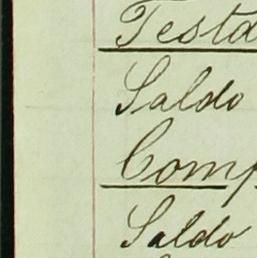 Testa
Saldo
Comp
Saldo